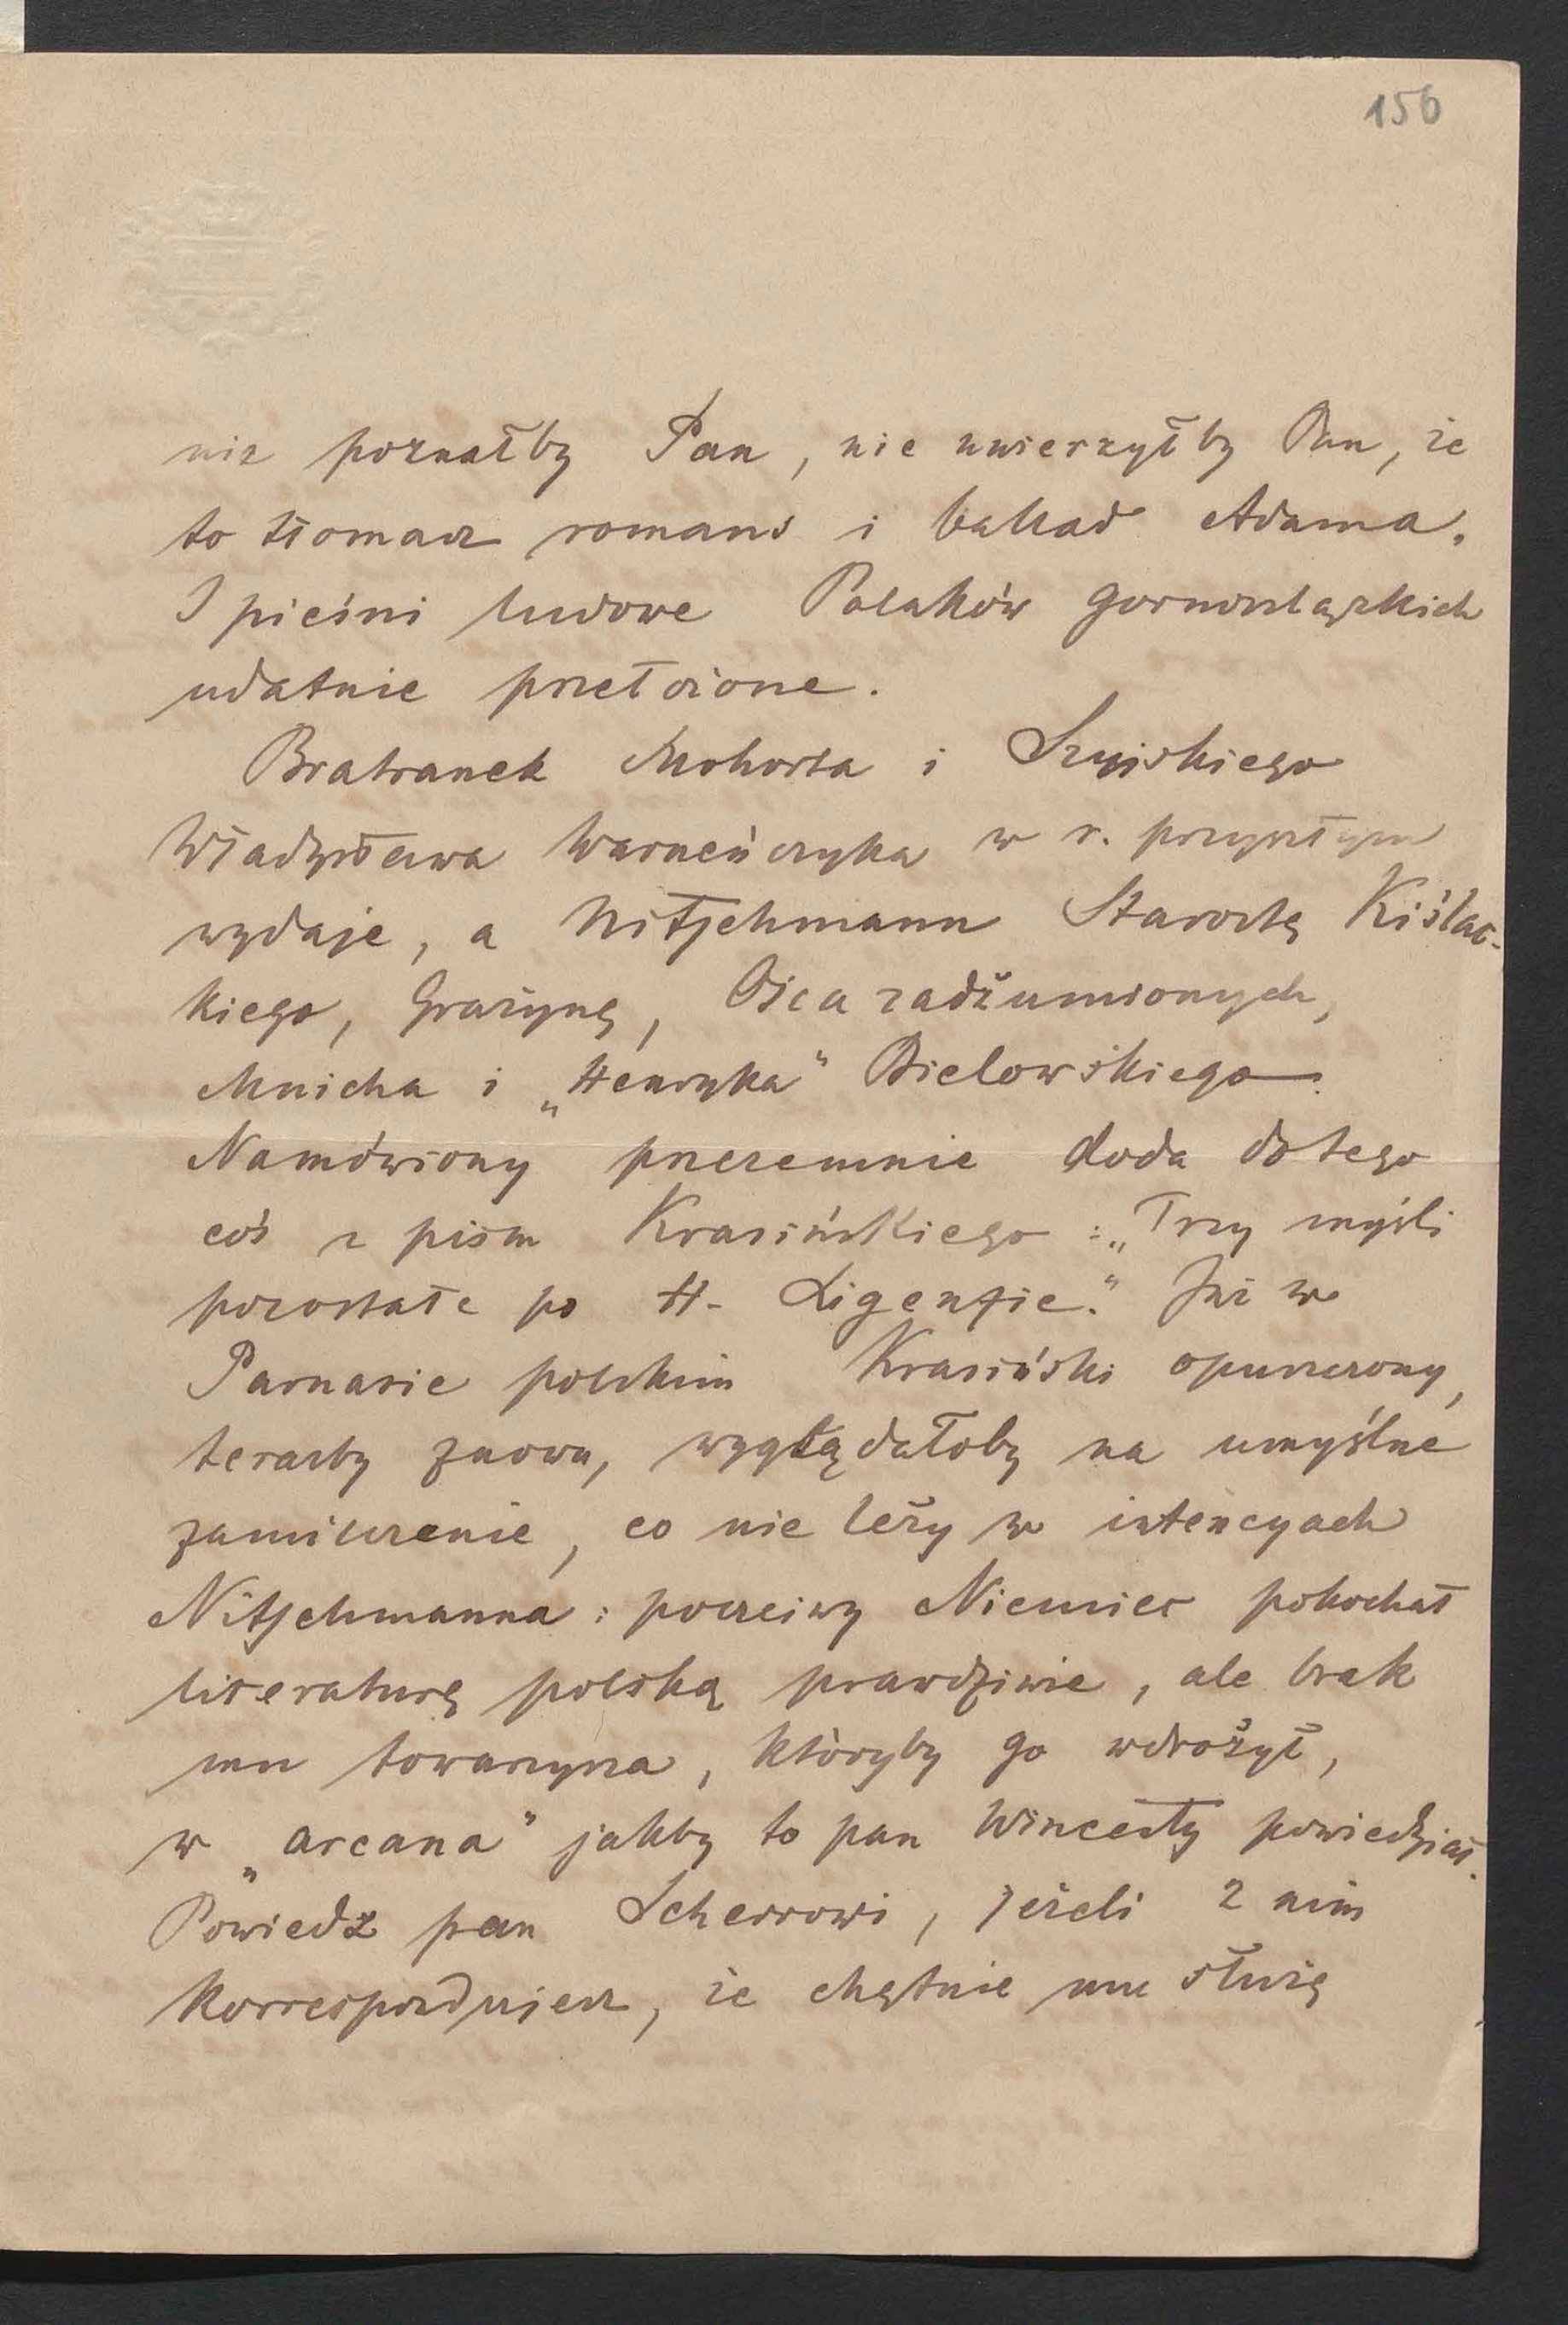 156
nie poznałby Pan, nie uwierzyłby Pan, że
to tłomacz romans i ballad Adama.
I pieśni ludowe Polaków gornoszląskich
udatnie przełożone.
Bratranek Mohorta i Szujskiego
Władysława Warneńczyka w r. przyszłym
wydaje, a Nitschmann Starostę Kiślac-
kiego, Grażynę, Ojca zadżumionych,
Mnicha i „Henryka" Bielowskiego.
Namówiony przezemnie doda do tego
coś z pism Krasińskiego: „Trzy myśli
pozostałe po H. Ligenzie." Już w
Parnasie polskim Krasiński opuszczony,
terazby znowu, wyglądałoby na umyślne
zamilczenie, co nie leży w intencyach
Nitschmanna: poczciwy Niemiec pokochał
literaturę polską prawdziwie, ale brak
mu towarzysza, któryby go wdrożył,
w „arcana" jakby to pan Wincenty powiedział.
Powiedz pan Scherrowi, jeżeli z nim
korrespondujesz, że chętnie mu służę